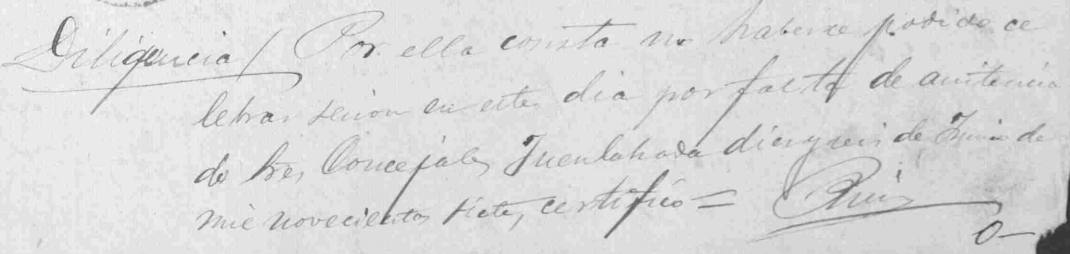 Diligencia / Por ella consta no haberse podido ce
lebrar sesion en este dia por falta de asistencia
de tres Concejales Fuenlabrada diez y seis de Junio de
mil novecientos siete, certifico =